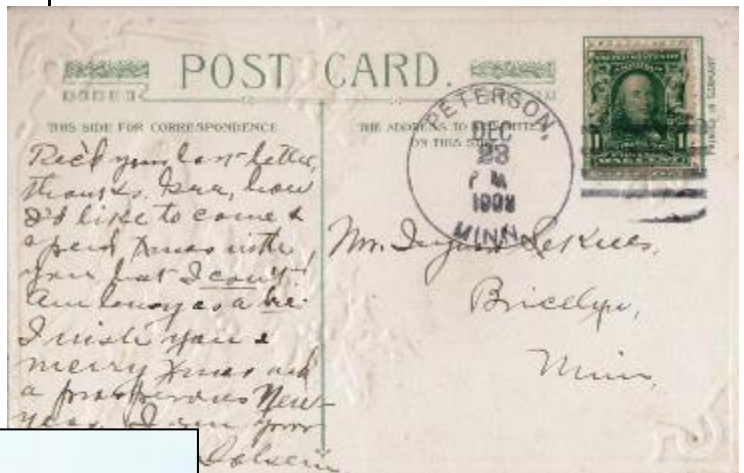 POST CARD.
THIS SIDE FOR CORRESPONDENCE
THE ADDRESS TO BE WRITTEN
ON THIS SIDE
PRINTED IN GERMANY
PETERSON,
DEC
23
P M
MINN.
1
Rec'd your last letter,
thanks. how
I'd like to come &
spend Xmas with
you but I can't
Am busy as a bee
I wish you a
merry Xmas and
a prosperous New
year. I am your
Mr.
Bricelyn,
Minn.